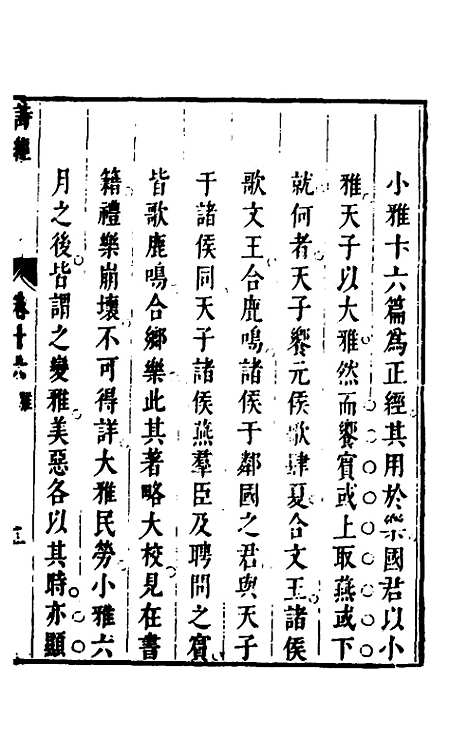 小雅十六篇為正經其用於樂國君以小
雅天子以大雅然而饗賓或上取燕或下
就何者天子饗元侯歌肆夏合文王諸侯
歌文王合鹿鳴諸侯于鄰國之君與天子
于諸侯同天子諸侯燕羣臣及聘問之賓
皆歌鹿鳴合鄉樂此其著略大校見在書
籍禮樂崩壞不可得詳大雅民勞小雅六
月之後皆謂之變雅美惡各以其時亦顯
詩經
卷十六